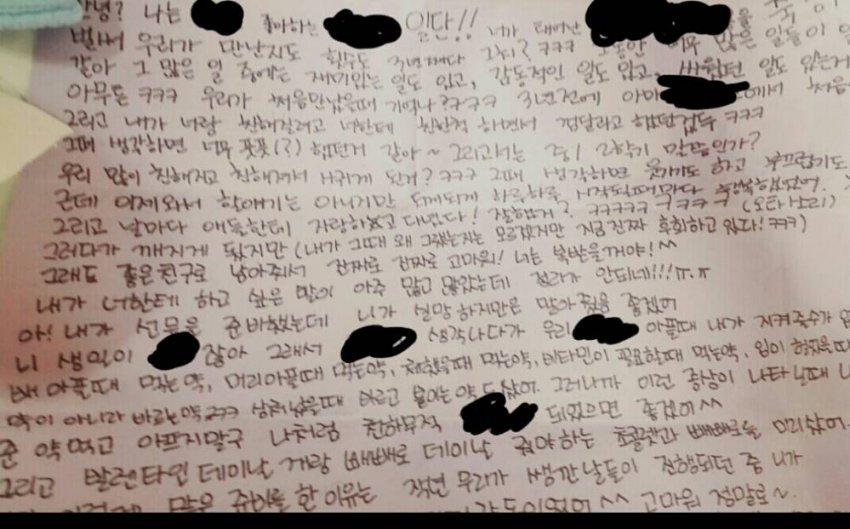 안녕? 나는 좋아하는 일단!! 너가 태어난
벌써 우리가 만난지도 3년째다 그치? ㅋㅋㅋ 그동안 너무 많은 일들이
같아 그 많은 일 중에는 재미있는 일도 있고, 감동적인 일도 있고, 싸웠던 일도 있는거
아무튼 ㅋㅋㅋ 우리가 처음만났을때 기억나? ㅋㅋㅋㅋ 3년전에 에서 처음
그리고 내가 너랑 친해질려고 너한테 친한척 하면서 했던것두 ㅋㅋㅋ
그때 생각하면 너무 풋풋(?) 했던거 같아~ 그리고서는 중1 2학기 말쯤인가?
우리 많이 친해지고 친해져서 사귀게 된거? ㅋㅋㅋ 그때 생각하면 웃기기도 하고 부끄럽기도
근데 이제와서 할얘기는 아니지만 하루하루 시작될때마다 행복했었어.
그리고 날마다 애들한테 자랑하고 다녔다! 잘했지? ㅋㅋㅋㅋㅋ ㅋㅋㅋㅋ
그러다가 깨지게 됐지만 (내가 그때 왜 그랬는지는 모르겠지만 지금 진짜 후회하고 있다! ㅋㅋ)
그래도 좋은친구로 남아줘서 진짜로 진짜로 고마워! 너는 복받을꺼야! ^^
내가 너한테 하고 싶은 말이 아주 많고 많았는데 정리가 안되네!!! ㅠ.ㅠ
아! 내가 선물을 준비했는데 니가 실망하지만은 말아줬음 좋겠어
니 생일이 잖아 그래서 생각나다가 우리 아플때 내가 지켜줄수가
배아플때 먹는약, 머리아플때 먹는약, 체했을때 먹는약, 비타민이 필요할때 먹는약, 입이 헐었을때
약이 아니라 바르는약 ㅋㅋㅋ 상처났을때 바르고 붙이는약도 샀어. 그러니까 이런 증상이 나타날때
준 약먹고 아프지말구 나처럼 천하무적 되었으면 좋겠어 ^^
그리고 발렌타인 데이날 꺼랑 빼빼로 데이날 줘야하는 초콜렛과 빼빼로를 미리샀어.
많은 준비를 한 이유는 작년 우리가 쌩깐 날들이 진행되던 중 니가
^^ 고마워 정말로~